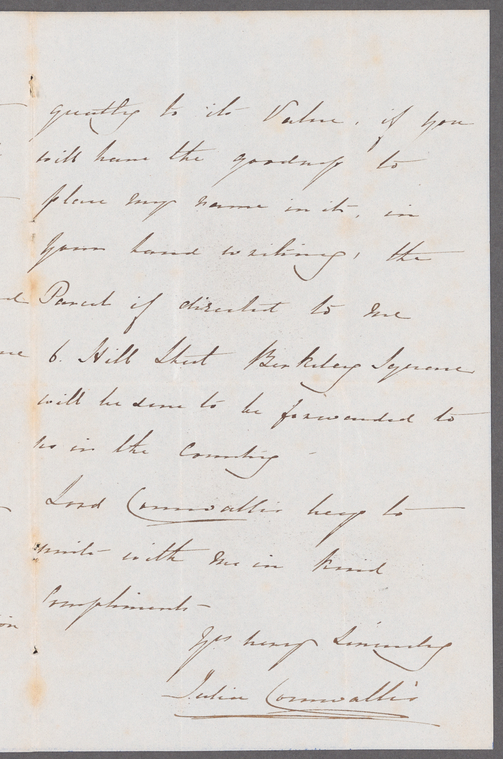 greatly to its Value, if you
will have the goodness to
place my name in it, in
your hand writing, the
Parcel if directed to me
6. Hill Street Berkeley Square
will be sure to be forwarded to
us in the Country -
Lord Cornwallis begs to
unite with me in kind
Compliments -
Yrs very Sincerely
Julia Cornwallis